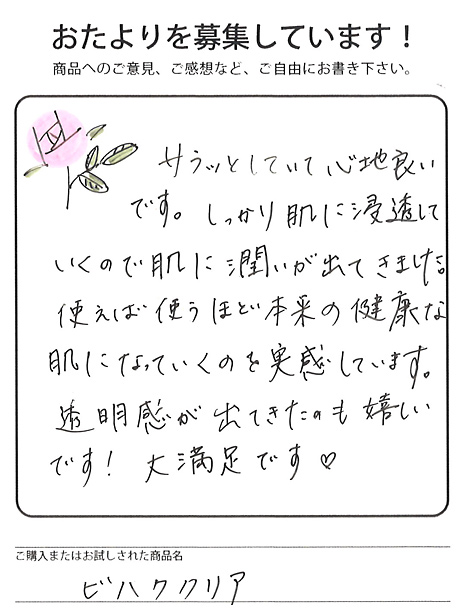 おたよりを募集しています！
商品へのご意見、ご感想など、ご自由にお書き下さい。
サラッとしていて心地良い
です。しっかり肌に浸透して
いくので肌に潤いが出てきました。
使えば使うほど本来の健康な
肌になっていくのを実感しています。
透明感が出てきたのも嬉しい
です！大満足です♡
ご購入またはお試しされた商品名
ビハククリア